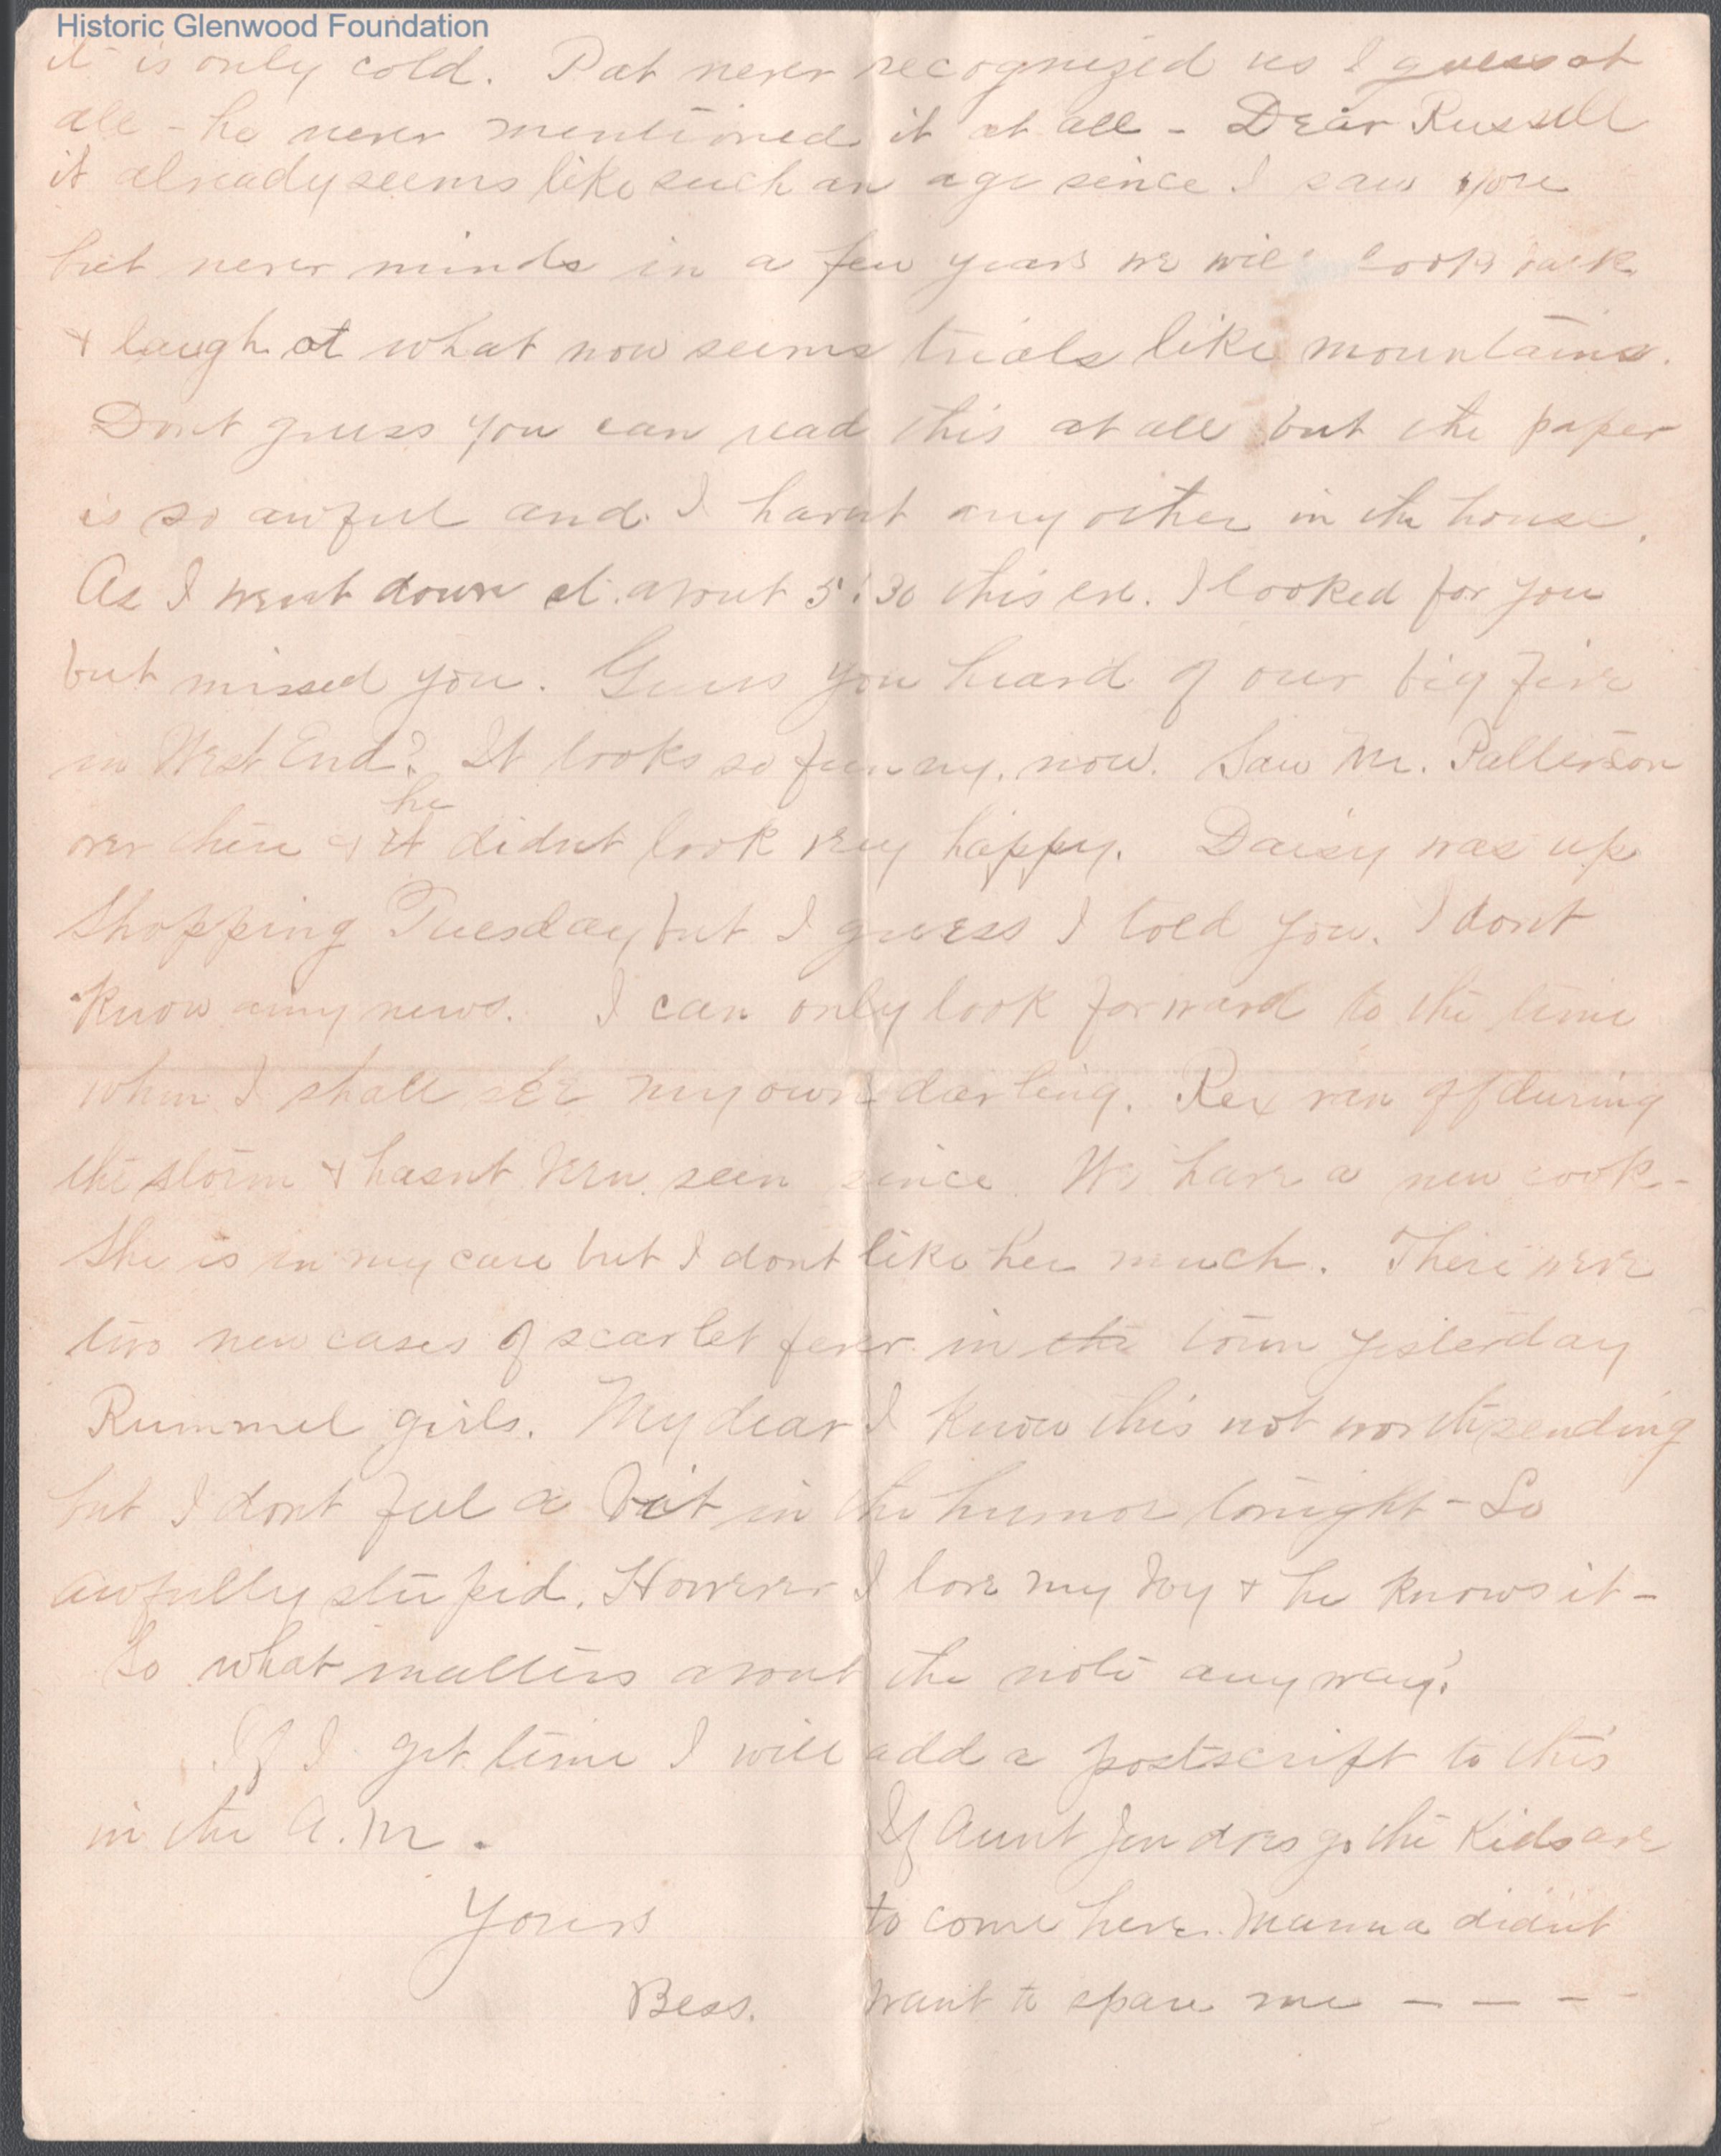 Historic Glenwood Foundation
it is only cold. Pat never recognized us I guess at
all - he never mentioned it at all - Dear Russell
it already seems like such an age since I saw you
but never minds in a few years we will look back
& laugh at what now seems trials like mountains.
Dont guess you can read this at all but the paper
is so awful and I havnt any other in the house.
As I went down st. about 5:30 this eve. I looked for you
but missed you. Guess you heard of our big fire
in West End? It looks so funny, now. Saw Mr. Patterson
he
over there & it didnt look very happy. Daisy was up
shopping Tuesday but I guess I told you. I dont
know any news. I can only look forward to the time
when I shall see my own darling. Rex ran off during
the storm & hasnt been seen since. We have a new cook -
She is in my care but I dont like her much. There were
two new cases of scarlet fever in the town yesterday
Rummel girls. My dear I know this not worth sending
but I dont feel a bit in the humor tonight - So
awfully stupid. However I love my boy & he knows it -
So what matters about the note anyway?
If I get time I will add a postscript to this
in the A.M.
Yours
Bess.
If Aunt Jen does go the kids are
to come here. Mamma didn't
want to spare me - - - -